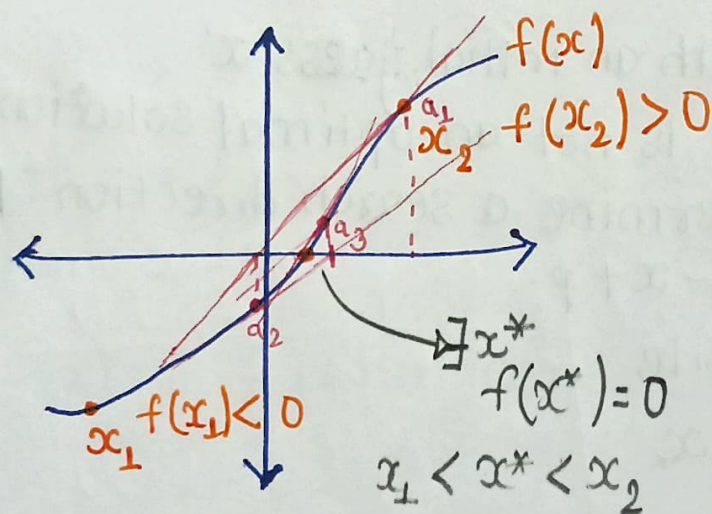 f(x)
a₁
x₂ f(x₂) > 0
a₃
a₂
x*
f(x*) = 0
x₁ f(x₁) < 0
x₁ < x* < x₂